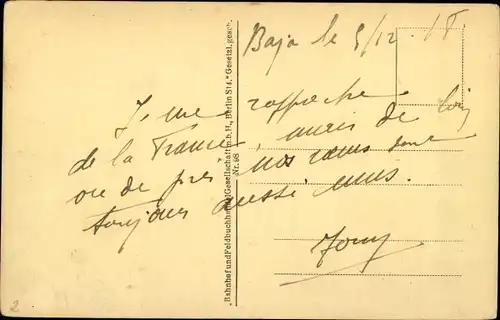 Baja le 5/12 18.
Je me rapproche
de la France, mais de loin
ou de près nos cœurs sont
toujours aussi unis.
„Bahnhof und Feldbuchhandel Gesellschaft m. b. H., Berlin S 14.“ Gesetzl. gesch.
Nr. 98
2